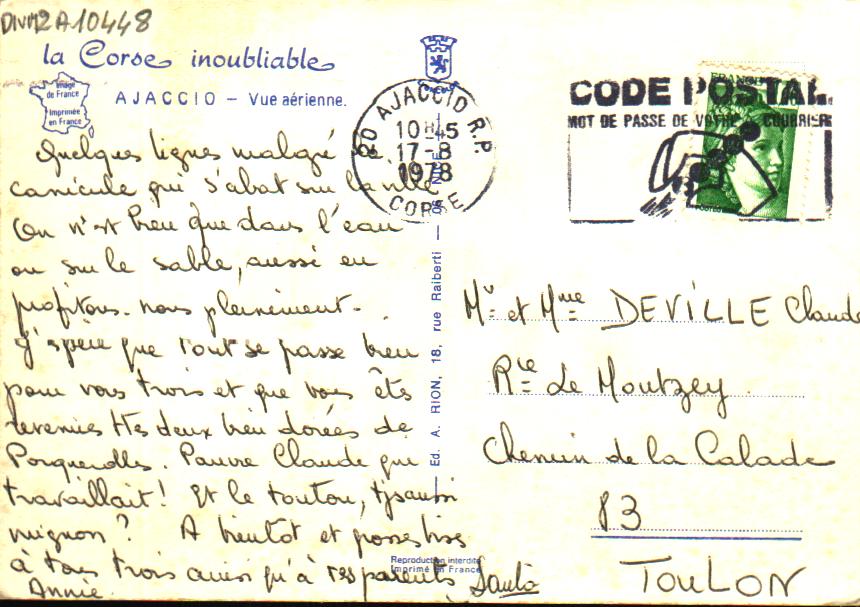 DIVM2A10448
la Corse inoubliable
Image de France
Imprimée en France
AJACCIO — Vue aérienne.
20 AJACCIO R.P.
10H45
17-8
1978
CORSE
CODE POSTAL
MOT DE PASSE DE VOTRE COURRIER
FRANCE
Quelques lignes malgré
canicule qui s'abat sur la ville
On n'est bien que dans l'eau
ou sur le sable, aussi en
profitons-nous pleinement.
J'espère que tout se passe bien
pour vous trois et que vous êtes
revenues ttes deux bien dorées de
Porquerolles. Pauvre Claude qui
travaillait! Et le toutou, tjs aussi
mignon? A bientôt et grosses bises
à tous trois ainsi qu'à tes parents
Annie
Mr et Mme DEVILLE Claude
Rce Le Montzey
Chemin de la Calade
83
TOULON
Ed. A. RION, 18, rue Raiberti — 06 NICE
Reproduction interdite
Imprimé en France